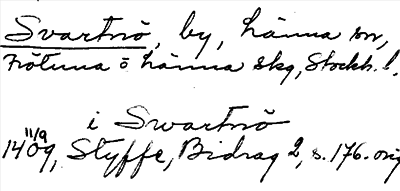 Svartnö, by, Länna sn,
Frötuna o Länna skg, Stockh. l.
i Swartnö
14 11/9 09, Styffe, Bidrag 2, s. 176. orig